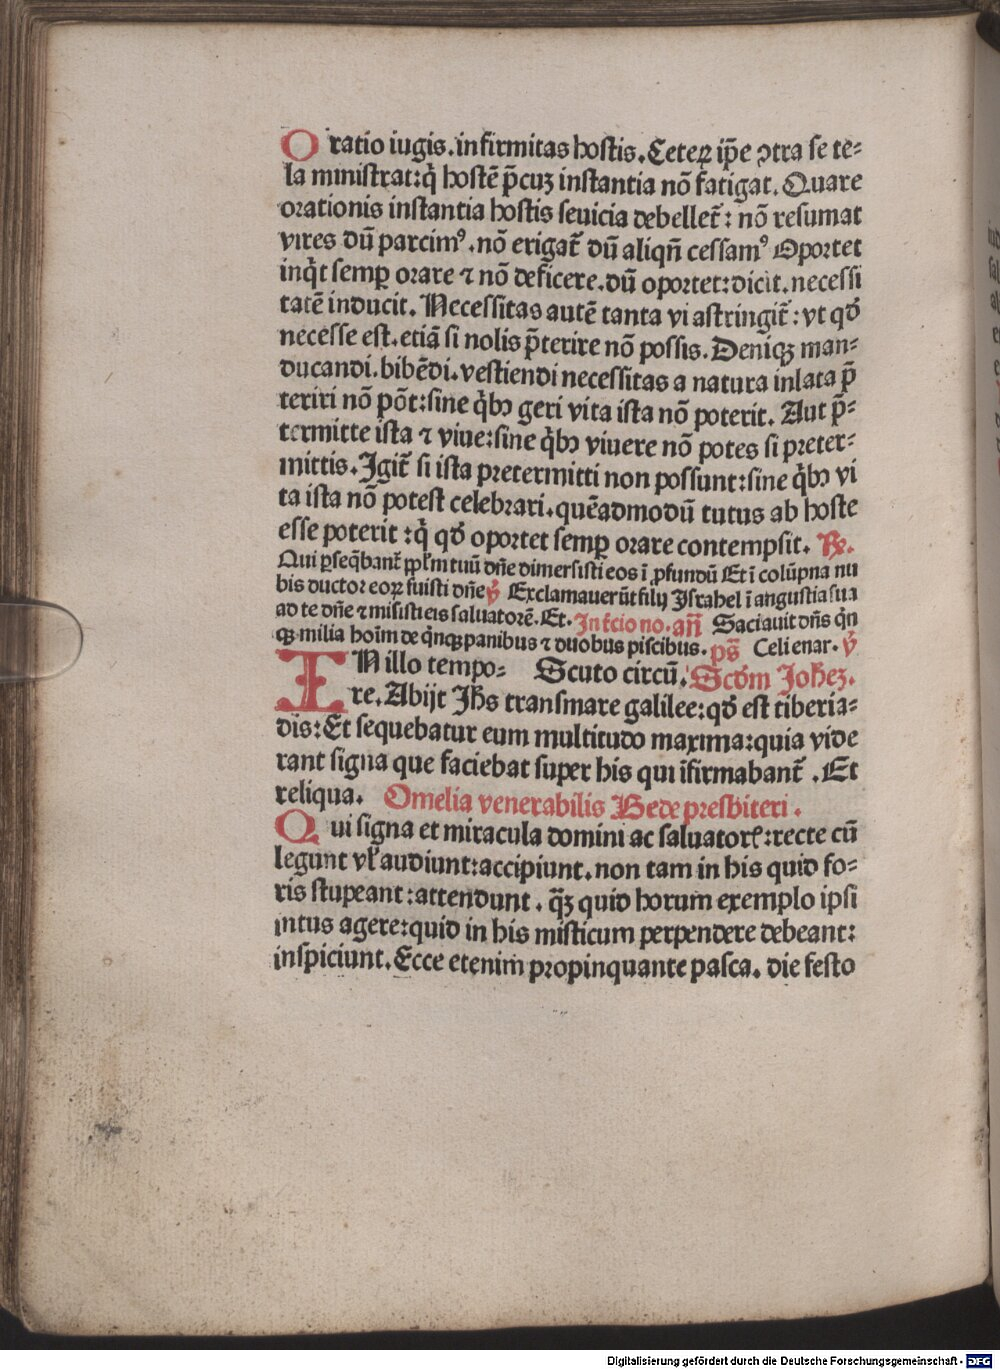 Oratio iugis. infirmitas hostis. Ceteꝝ ip̄e ꝯtra se te⸗
la ministrat: q̄ hostē p̄cuꝫ instantia nō fatigat. Quare
orationis instantia hostis seuicia debellet̄: nō resumat
vires dū parcimꝰ. nō erigat̄ dū aliqn̄ cessamꝰ Oportet
inq̇t semꝑ orare ⁊ nō deficere. dū oportet: dicit. necessi
tatē inducit. Necessitas autē tanta vi astringit̄: vt qď
necesse est. etiā si nolis p̄terire nō possis. Deniqꝫ man⸗
ducandi. bibēdi. vestiendi necessitas a natura inlata p̄
teriri nō pōt: sine q̇bꝰ geri vita ista nō poterit. Aut p̄⸗
termitte ista ⁊ viue: sine q̇bꝰ viuere nō potes si preter⸗
mittis. Igit̄ si ista pretermitti non possunt: sine q̇bꝰ vi
ta ista nō potest celebrari. quēadmodū tutus ab hoste
esse poterit: q̇ qď oportet semꝑ orare contempsit. ℞.
Qui ꝑseq̄bant̄ ppl̄m tuū dn̄e dimersisti eos ī ꝓfundū Et ī colūpna nu
bis ductor eoꝝ fuisti dn̄e ℣ Exclamauerūt filij Israhel ī angustia sua
ad te dn̄e ⁊ misisti eis saluatorē. Et. In t̄cio no. an̄ Saciauit dn̄s q̇n
qꝫ milia hoīm de q̇nqꝫ panibus ⁊ duobus piscibus. ps̄ Celi enar. ℣
IN illo tempo⸗ Scuto circū. Scďm Joh̄eꝫ.
re. Abijt Jh̄s transmare galilee: qď est tiberia⸗
dis: Et sequebatur eum multitudo maxima: quia vide
rant signa que faciebat super his qui īfirmabant̄. Et
reliqua. Omelia venerabilis Bede presbiteri.
Qui signa et miracula domini ac saluatorꝭ: recte cū
legunt vl̄ audiunt: accipiunt. non tam in his quid fo⸗
ris stupeant: attendunt. q̄ꝫ quid horum exemplo ipsi
intus agere: quid in his misticum perpendere debeant:
inspiciunt. Ecce etenim propinquante pasca. die festo
Digitalisierung gefördert durch die Deutsche Forschungsgemeinschaft - DFG